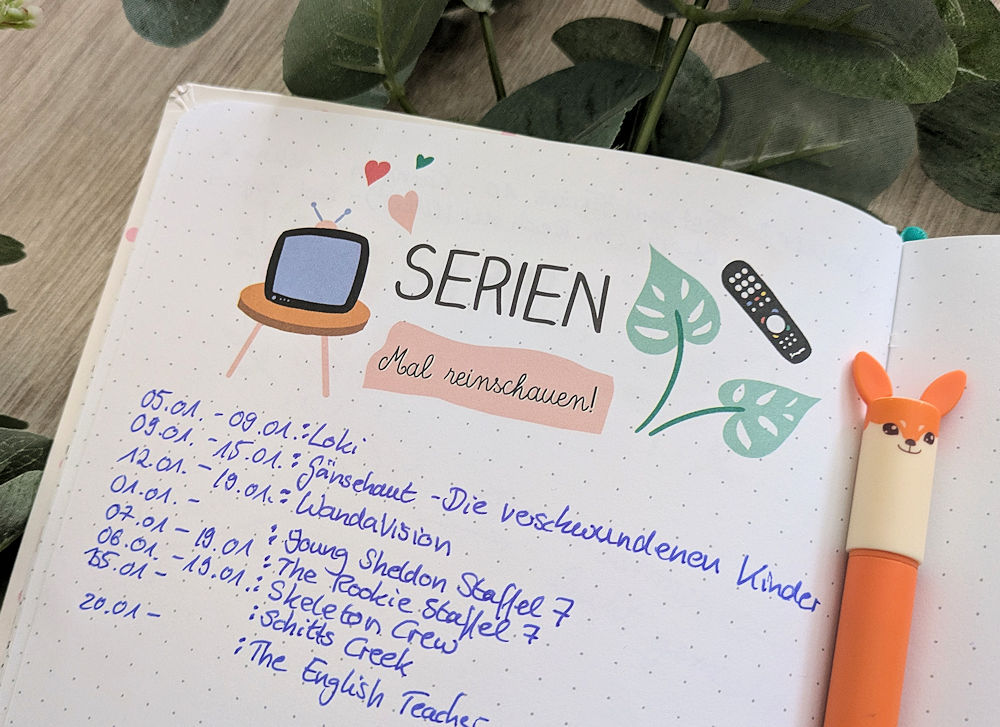 SERIEN
Mal reinschauen!
05.01. - 09.01. : Loki
09.01. - 15.01. : Gänsehaut - Die verschwundenen Kinder
12.01. - 19.01. : WandaVision
01.01. - : Young Sheldon Staffel 7
07.01 - 19.01 : The Rookie Staffel 7
06.01. - 19.01. : Skeleton Crew
15.01 - : Schitts Creek
20.01 - : The English Teacher